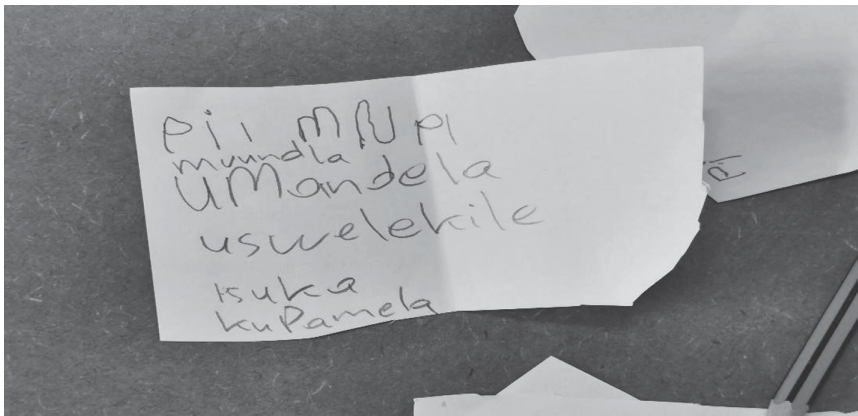 Pii MNPI
muundla
UMandela
uswelekile
isuka
kuPamela
Pi